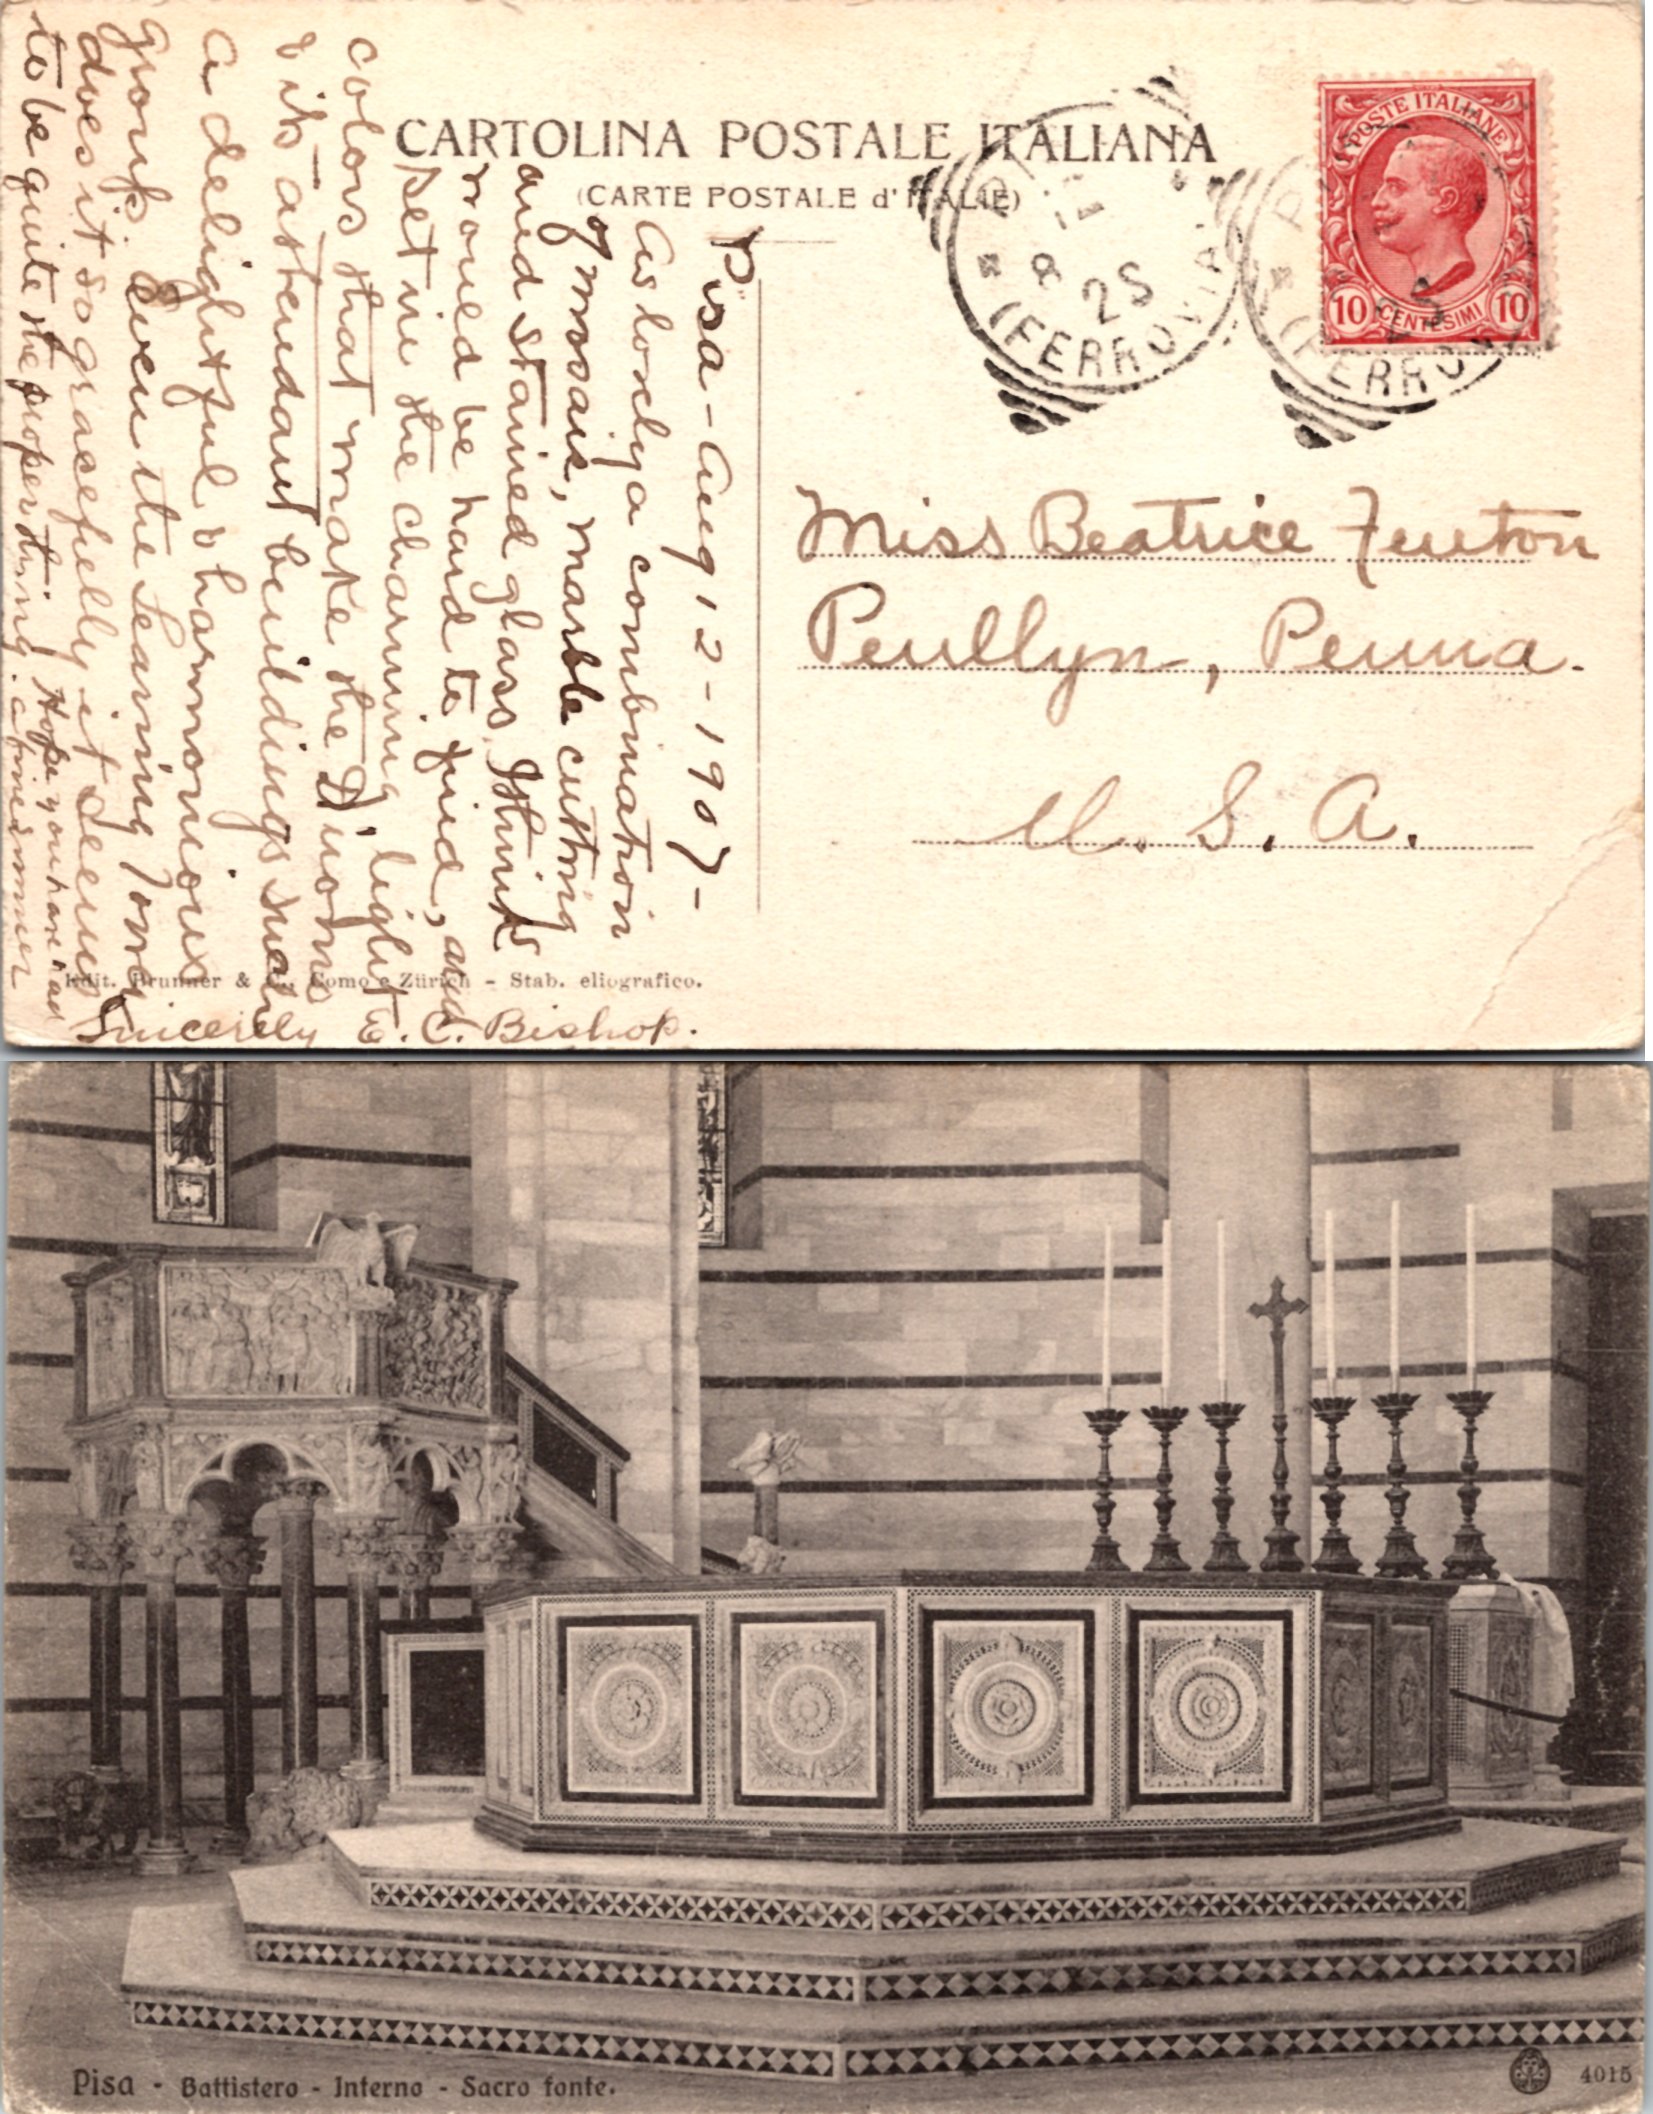 CARTOLINA POSTALE ITALIANA
(CARTE POSTALE d'ITALIE)
POSTE ITALIANE
10 CENTESIMI 10
PISA
8 25
(FERROVIA)
(FERROVIA)
Miss Beatrice Fenton
Penllyn, Penna.
U. S. A.
Pisa - Aug 12 - 1907 -
As lonely a combination
of mosaic, marble cutting
and stained glass I think
would be hard to find, and
set in the charming light
colors that make the Duomo
& its attendant buildings such
a delightful & harmonious
group. Even the Leaning Tower
does it so gracefully it seems
to be quite the proper thing. Hope you have had
a fine summer
Sincerely E. C. Bishop.
Edit. Brunner & C., Como e Zürich - Stab. eliografico.
Pisa - Battistero - Interno - Sacro fonte.
4015